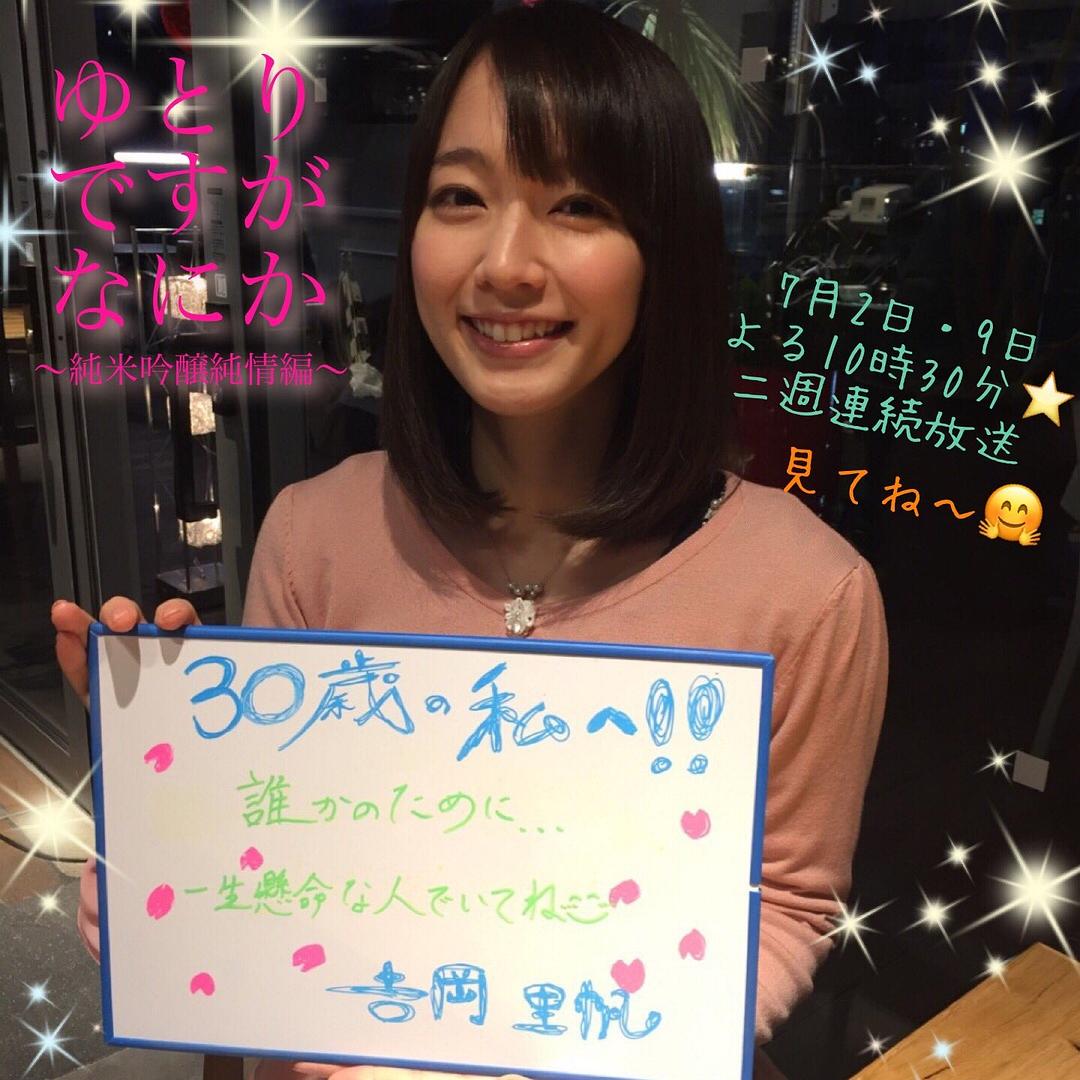 ゆとり
ですが
なにか
～純米吟醸純情編～
7月2日・9日
よる10時30分
二週連続放送
見てね～
30歳の私へ!!
誰かのために...
一生懸命な人でいてね
吉岡里帆